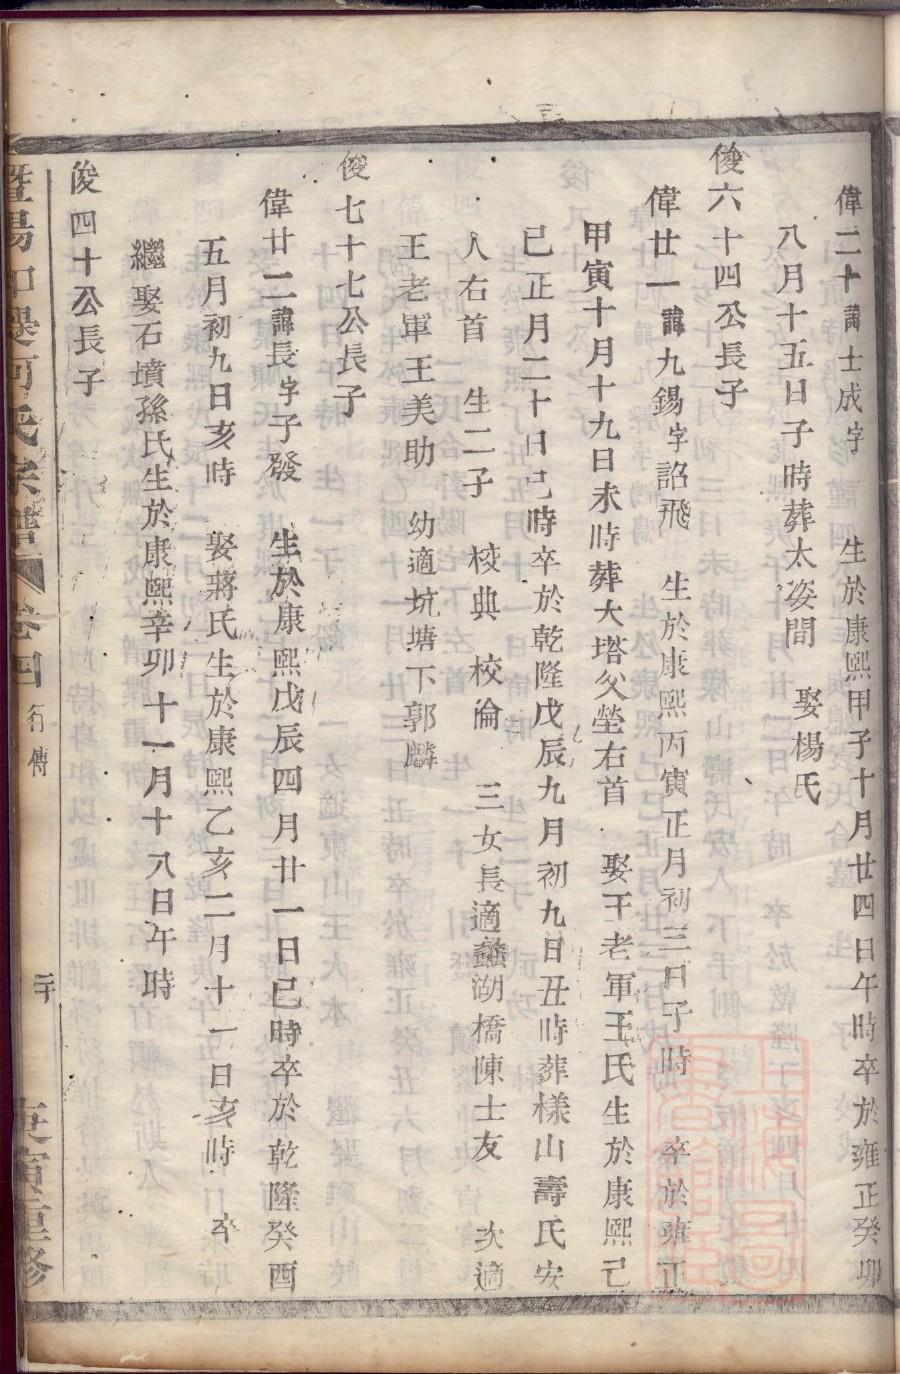 偉二十諱士成字　生於康熙甲子十月廿四日午時卒於雍正癸卯
八月十五日子時葬太姿間　娶楊氏
俊六十四公長子
偉廿一諱九錫字詔飛　生於康熙丙寅正月初三日子時　卒於雍正
甲寅十月十九日未時葬大塔父塋右首　娶王老軍王氏生於康熙己
巳正月二十日巳時卒於乾隆戊辰九月初九日丑時葬樣山壽氏安
人右首　生二子　校典　校倫　三女長適蠡湖橋陳士友　次適
王老軍王美助　幼適坑塘下郭麟
俊七十七公長子
偉廿二諱長字子發　生於康熙戊辰四月廿一日巳時卒於乾隆癸酉
五月初九日亥時　娶蔣氏生於康熙乙亥二月十一日亥時　卒
繼娶石墳孫氏生於康熙辛卯十一月十八日午時
俊四十公長子
暨陽　何氏宗譜　卷四　行傳　二十　寅重修